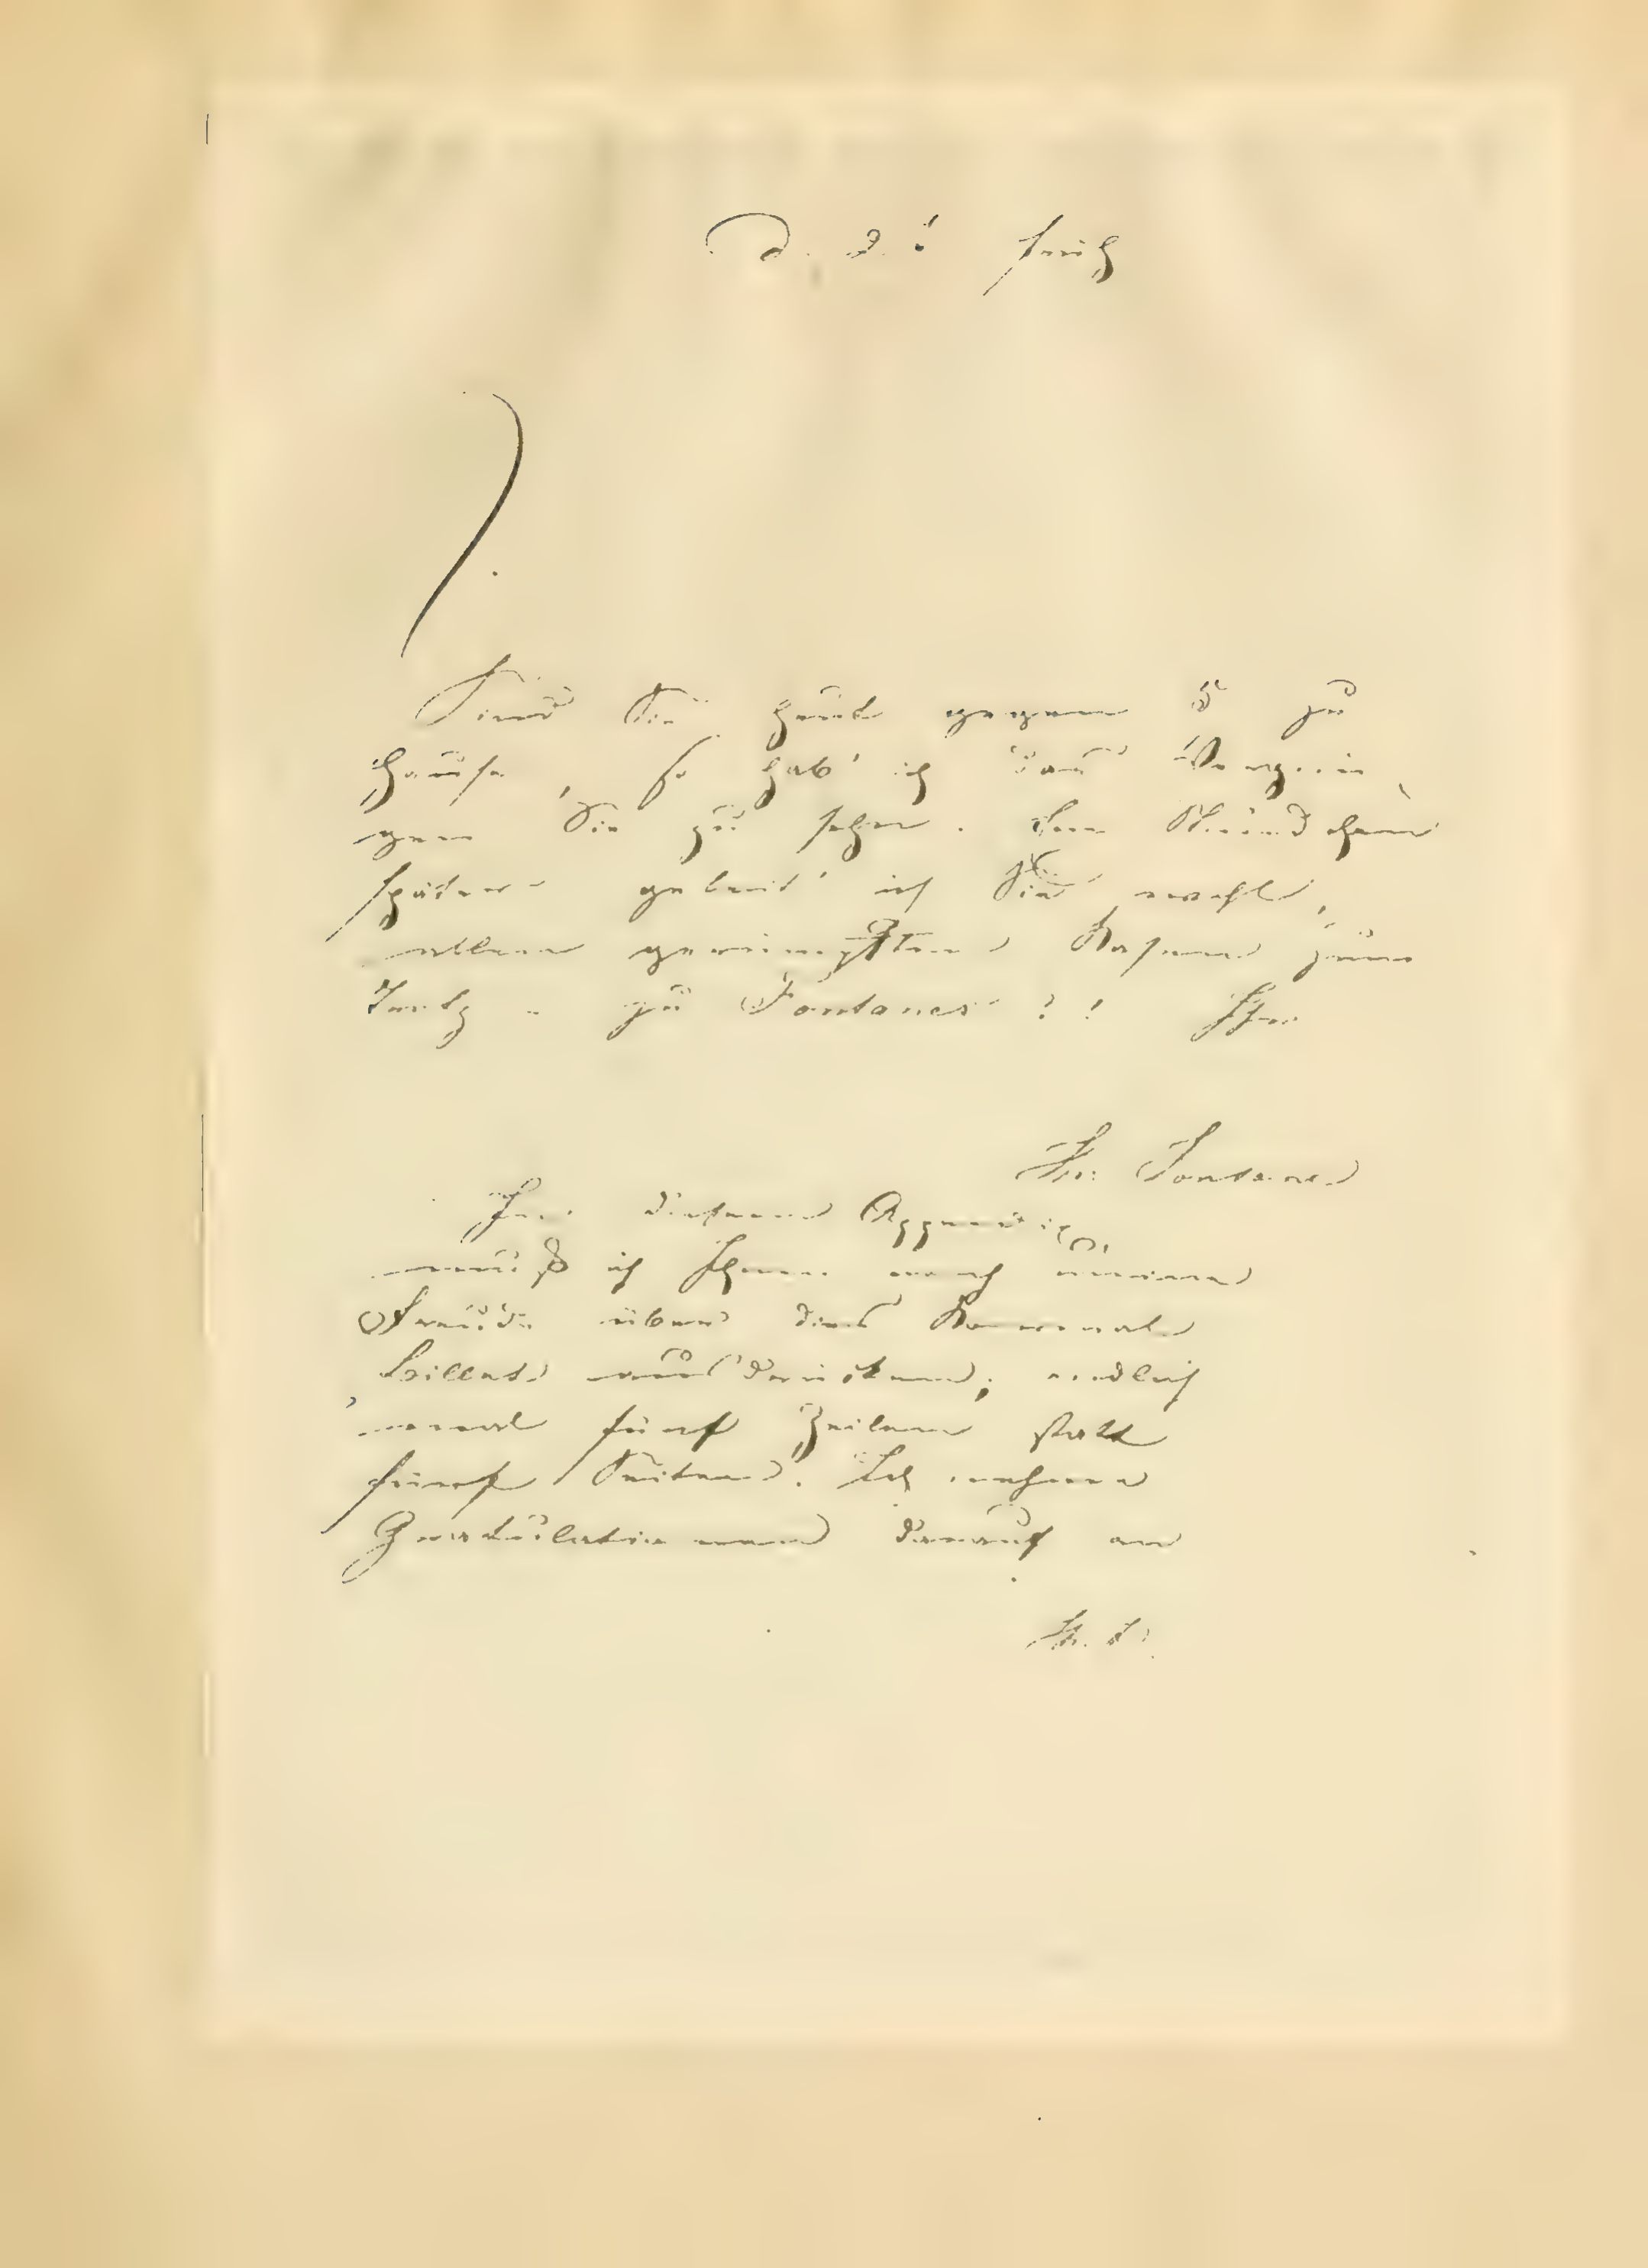 d. 2t früh
Sind Sie heut gegen 8 zu
Hause, so hab' ich das Vergnü
gen Sie zu sehn. Ein Stündchen
später geleit' ich Sie wohl,
allen gerümpften Nasen zum
Trotz – zu Fontanes?! Ihr
Th: Fontane
In diesem Appendix
muß ich Ihnen noch meine
Freude über das
billet ausdrücken; endlich
mal fünf Zeilen statt
fünf Seiten. Ich nehme
Gratulationen darauf an
Th. F.